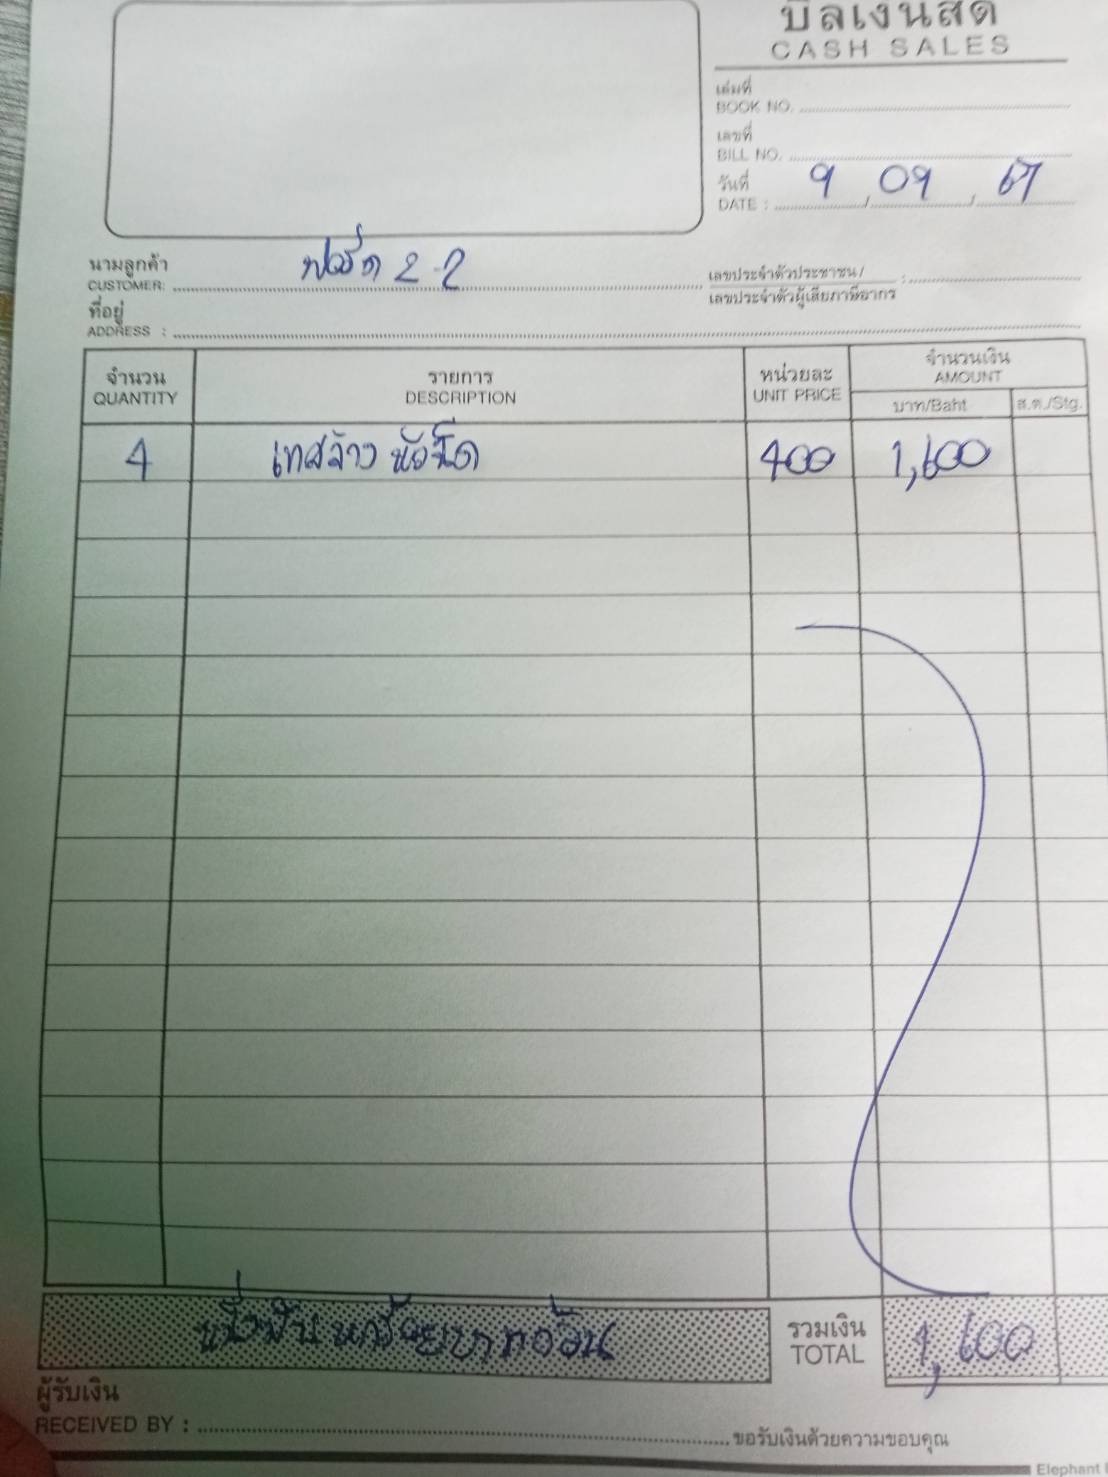 บิลเงินสด
CASH SALES
เล่มที่
BOOK NO.
เลขที่
BILL NO.
วันที่ 9 09 67
DATE : / /
นามลูกค้า ฟอร์ด 2-2
CUSTOMER:
เลขประจำตัวประชาชน/ :
เลขประจำตัวผู้เสียภาษีอากร
ที่อยู่
ADDRESS :
จำนวน รายการ หน่วยละ จำนวนเงิน
QUANTITY DESCRIPTION UNIT PRICE AMOUNT
บาท/Baht ส.ต./Stg.
4 เทสล้าง หัวฉีด 400 1,600
หนึ่งพันหกร้อยบาทถ้วน รวมเงิน 1,600
TOTAL
ผู้รับเงิน
RECEIVED BY :
ขอรับเงินด้วยความขอบคุณ
Elephant